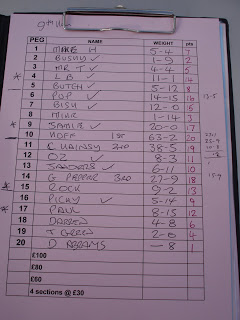 9th
PEG NAME WEIGHT pts
1 MIKE H 5-4 7
2 BUSHY ✓ 1-9 2
3 MR T ✓ 4-4 5
4 L B ✓ 11-1 14
5 BUTCH ✓ 5-12 8
6 POP ✓ 14-15 16
7 BISH ✓ 12-0 15
8 MIKE 1-14 3
9 20-0 17
10 1st 63-2 20
11 C 2ND 38-5 19
12 OZ ✓ 8-3 11
13 SANDERS ✓ 6-11 10
14 G PEPPER 3RD 27-9 18
15 ROCK 9-2 13
16 PICKY ✓ 5-14 9
17 PAUL 8-15 12
18 DARREN 4-8 6
19 T GREEN 2-0 4
20 D ABRAMS -8 1
£100
£80
£60
4 sections @ £30